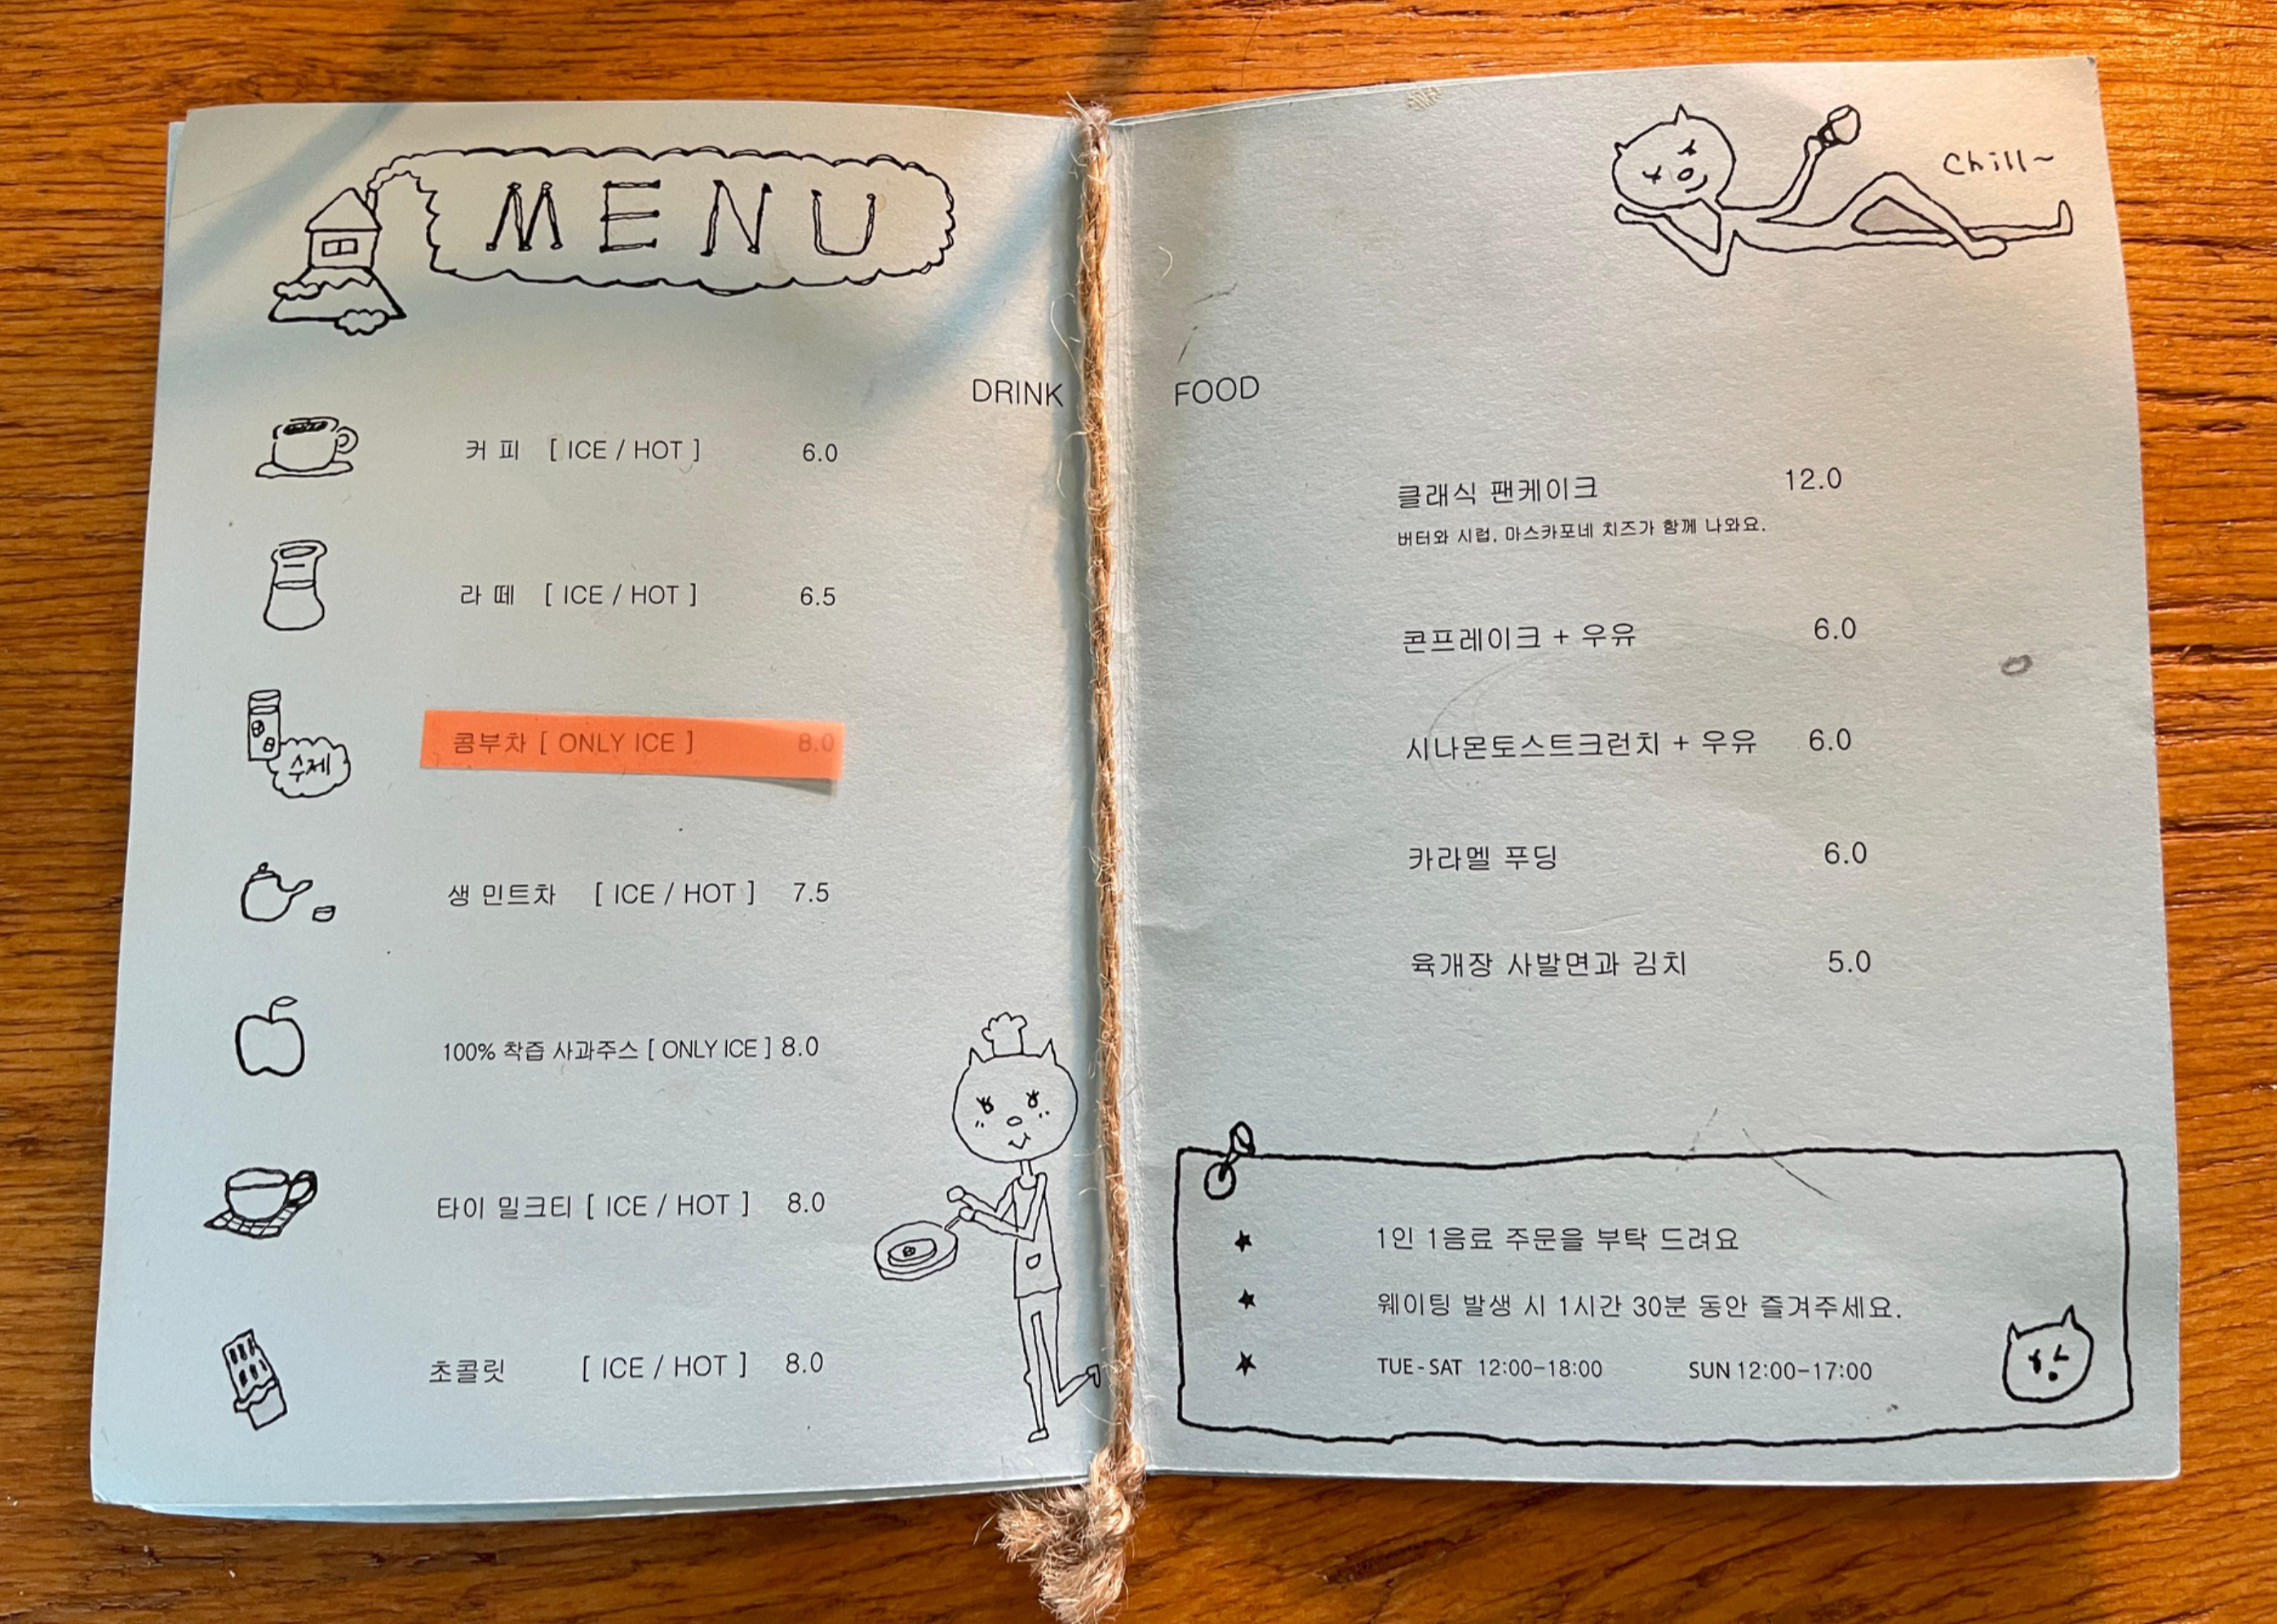 MENU
DRINK
커 피 [ ICE / HOT ] 6.0
라 떼 [ ICE / HOT ] 6.5
수제
콤부차 [ ONLY ICE ] 8.0
생 민트차 [ ICE / HOT ] 7.5
100% 착즙 사과주스 [ ONLY ICE ] 8.0
타이 밀크티 [ ICE / HOT ] 8.0
초콜릿 [ ICE / HOT ] 8.0
Chill~
FOOD
클래식 팬케이크 12.0
버터와 시럽, 마스카포네 치즈가 함께 나와요.
콘프레이크 + 우유 6.0
시나몬토스트크런치 + 우유 6.0
카라멜 푸딩 6.0
육개장 사발면과 김치 5.0
★ 1인 1음료 주문을 부탁 드려요
★ 웨이팅 발생 시 1시간 30분 동안 즐겨주세요.
★ TUE-SAT 12:00-18:00 SUN 12:00-17:00